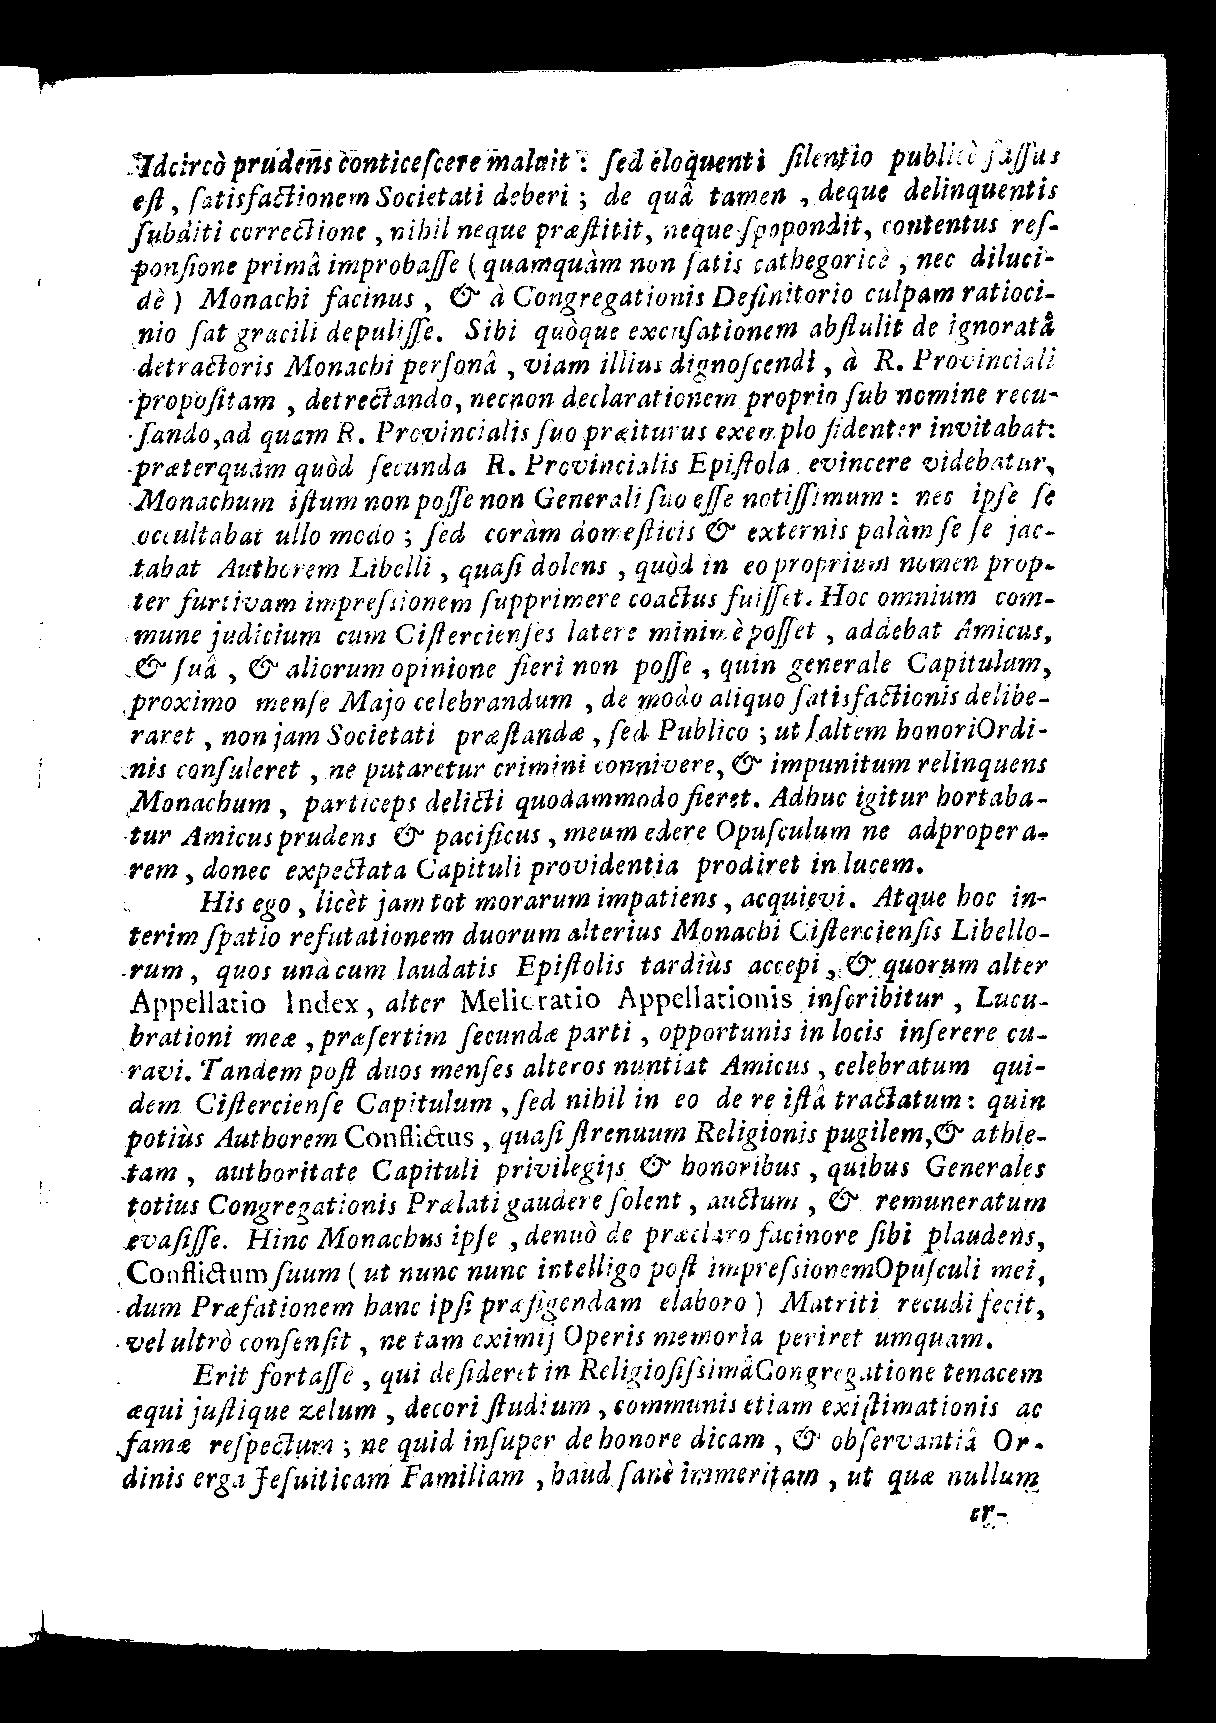 Idcircò prudens conticeſcere maluit : ſed eloquenti ſilentio publicè faſſus
eſt , ſatisfactionem Societati deberi ; de quâ tamen , deque delinquentis
ſubditi correctione , nihil neque præſtitit, neque ſpopondit, contentus reſ-
ponſione primâ improbaſſe ( quamquàm non ſatis cathegoricè , nec diluci-
dè ) Monachi facinus , & à Congregationis Definitorio culpam ratioci-
nio ſat gracili depuliſſe. Sibi quòque excuſationem abſtulit de ignoratâ
detractoris Monachi perſonâ , viam illius dignoſcendi , à R. Provinciali
propoſitam , detrectando, necnon declarationem proprio ſub nomine recu-
ſando,ad quam R. Provincialis ſuo præiturus exemplo fidenter invitabat:
præterquàm quòd ſecunda R. Provincialis Epiſtola evincere videbatur,
Monachum iſtum non poſſe non Generali ſuo eſſe notiſſimum : nec ipſe ſe
occultabat ullo modo ; ſed coràm domeſticis & externis palàm ſe ſe jac-
tabat Authorem Libelli , quaſi dolens , quòd in eo proprium nomen prop-
ter furtivam impreſsionem ſupprimere coactus fuiſſet. Hoc omnium com-
mune judicium cum Ciſtercienſes latere minimè poſſet , addebat Amicus,
& ſuâ , & aliorum opinione fieri non poſſe , quin generale Capitulum,
proximo menſe Majo celebrandum , de modo aliquo ſatisfactionis delibe-
raret , non jam Societati præſtandæ , ſed Publico ; ut ſaltem honoriOrdi-
nis conſuleret , ne putaretur crimini connivere, & impunitum relinquens
Monachum , particeps delicti quodammodo fieret. Adhuc igitur hortaba-
tur Amicus prudens & pacificus , meum edere Opuſculum ne adpropera-
rem , donec expectata Capituli providentia prodiret in lucem.
His ego , licèt jam tot morarum impatiens , acquievi. Atque hoc in-
terim ſpatio refutationem duorum alterius Monachi Ciſtercienſis Libello-
rum , quos unà cum laudatis Epiſtolis tardiùs accepi , & quorum alter
Appellatio Index , alter Melicratio Appellationis inſcribitur , Lucu-
brationi meæ , præſertim ſecundæ parti , opportunis in locis inſerere cu-
ravi. Tandem poſt duos menſes alteros nuntiat Amicus , celebratum qui-
dem Ciſtercienſe Capitulum , ſed nihil in eo de re iſtâ tractatum : quin
potiùs Authorem Conflictus , quaſi ſtrenuum Religionis pugilem,& athle-
tam , authoritate Capituli privilegijs & honoribus , quibus Generales
totius Congregationis Prælati gaudere ſolent , auctum , & remuneratum
evaſiſſe. Hinc Monachus ipſe , denuò de præclaro facinore ſibi plaudens,
Conflictum ſuum ( ut nunc nunc intelligo poſt impreſsionemOpuſculi mei,
dum Præfationem hanc ipſi præfigendam elaboro ) Matriti recudi fecit,
vel ultrò conſenſit , ne tam eximij Operis memoria periret umquam.
Erit fortaſſe , qui deſideret in ReligioſiſsimâCongregatione tenacem
æqui juſtique zelum , decori ſtudium , communis etiam exiſtimationis ac
famæ reſpectum ; ne quid inſuper de honore dicam , & obſervantiâ Or-
dinis erga Jeſuiticam Familiam , haud ſanè immeritam , ut quæ nullum
er-